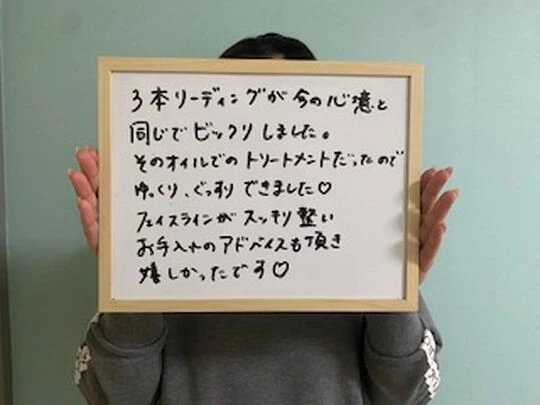 3本リーディングが今の心境と
同じでビックリしました。
そのオイルでのトリートメントだったので
ゆっくり、ぐっすりできました♡
フェイスラインがスッキリ整い
お手入れのアドバイスも頂き
嬉しかったです♡